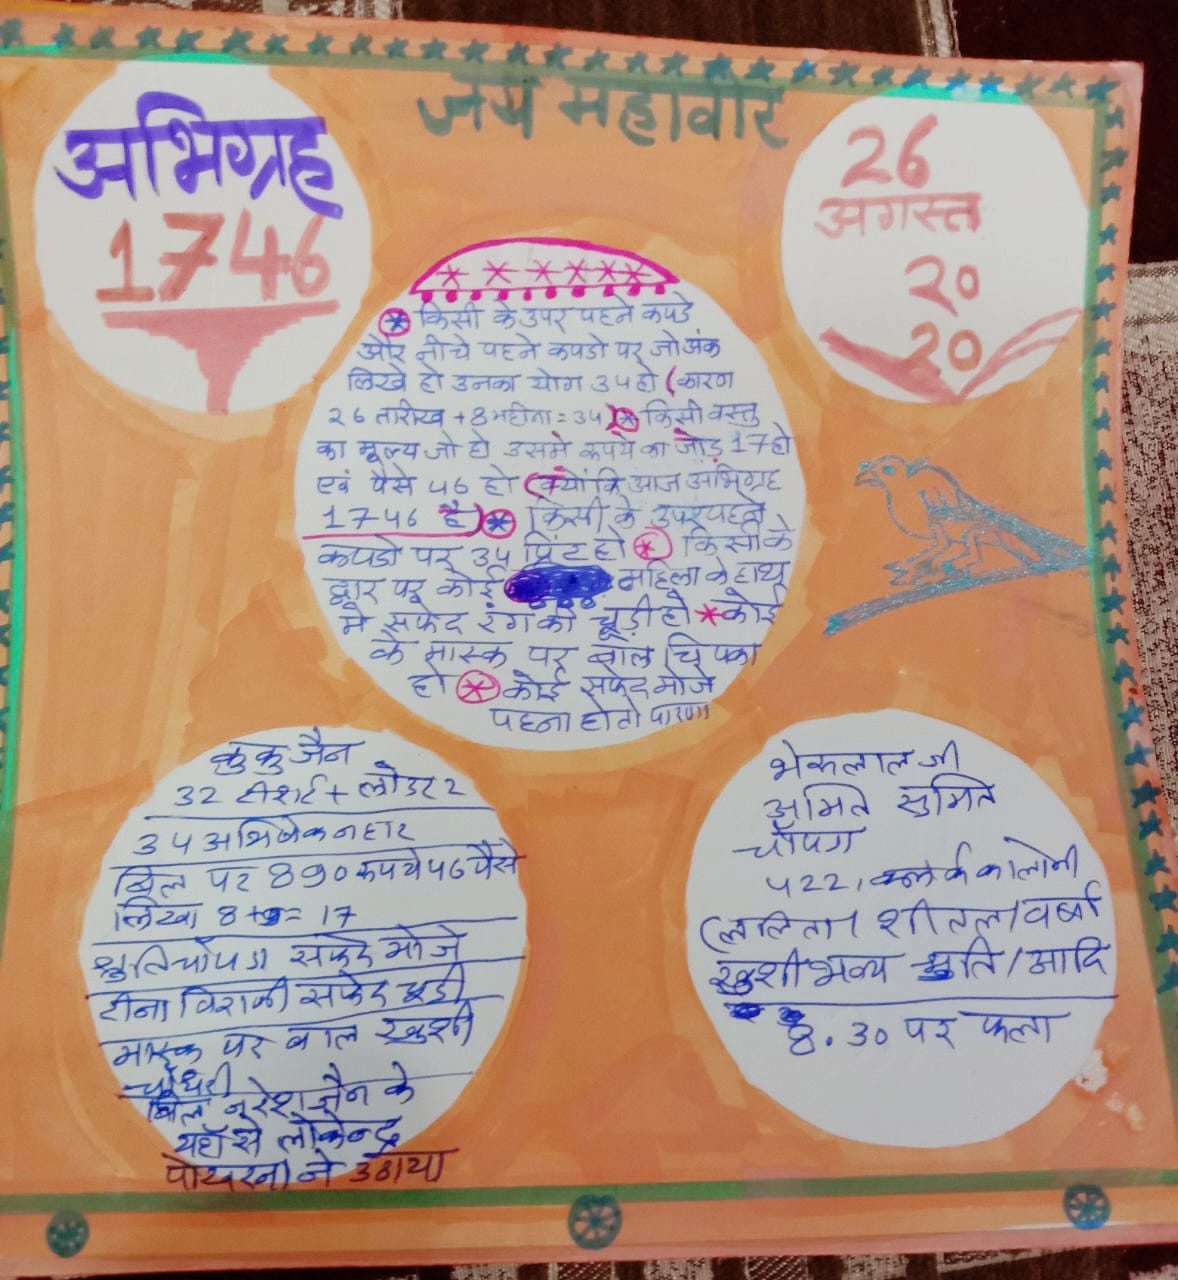 जय महावीर
अभिग्रह
1746
26
अगस्त
20
20
किसी के उपर पहने कपडे
और नीचे पहने कपडो पर जो अंक
लिखे हो उनका योग 34 हो (कारण
26 तारीख + 8 महीना = 34) किसी वस्तु
का मूल्य जो हो उसमे रूपये का जोड़ 17 हो
एवं पैसे 46 हो (क्यों कि आज अभिग्रह
1746 है) किसी के उपर पहने
कपडो पर 34 प्रिंट हो किसी के
द्वार पर कोई महिला के हाथ
मे सफेद रंग की चूड़ी हो * कोई
के मास्क पर बाल चिपका
हो कोई सफेद मोजे
पहना हो तो पारणा
कुकु जैन
32 टीशर्ट + लोअर 2
34 अभिषेक नहार
बिल पर 890 रूपये 46 पैसे
लिखा 8+9= 17
श्रुति चौपडा सफेद मोजे
टीना विराणी सफेद चूडी
मास्क पर बाल खुशी
चौधरी
बिल नरेश जैन के
यहाँ से लोकेन्द्र
पोखरना ने उठाया
भेरूलाल जी
अमित सुमित
चौपडा
422, क्लर्क कालोनी
(ललिता / शीतल / वर्षा
खुशी भव्य श्रुति / आदि
8.30 पर फला